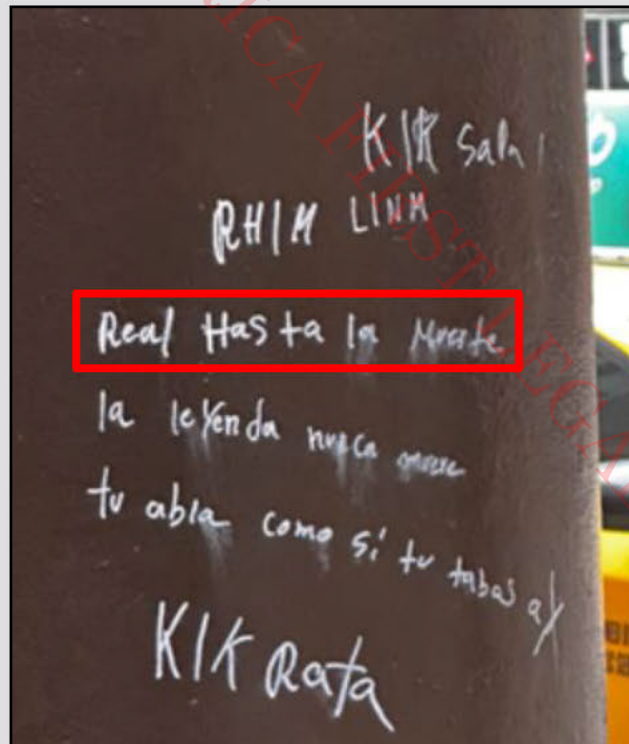 KIK Sala
RHIM LINM
Real Hasta la Muerte
la leyenda nunca muere
tu abla como si tu tabas ay
KIK Rata